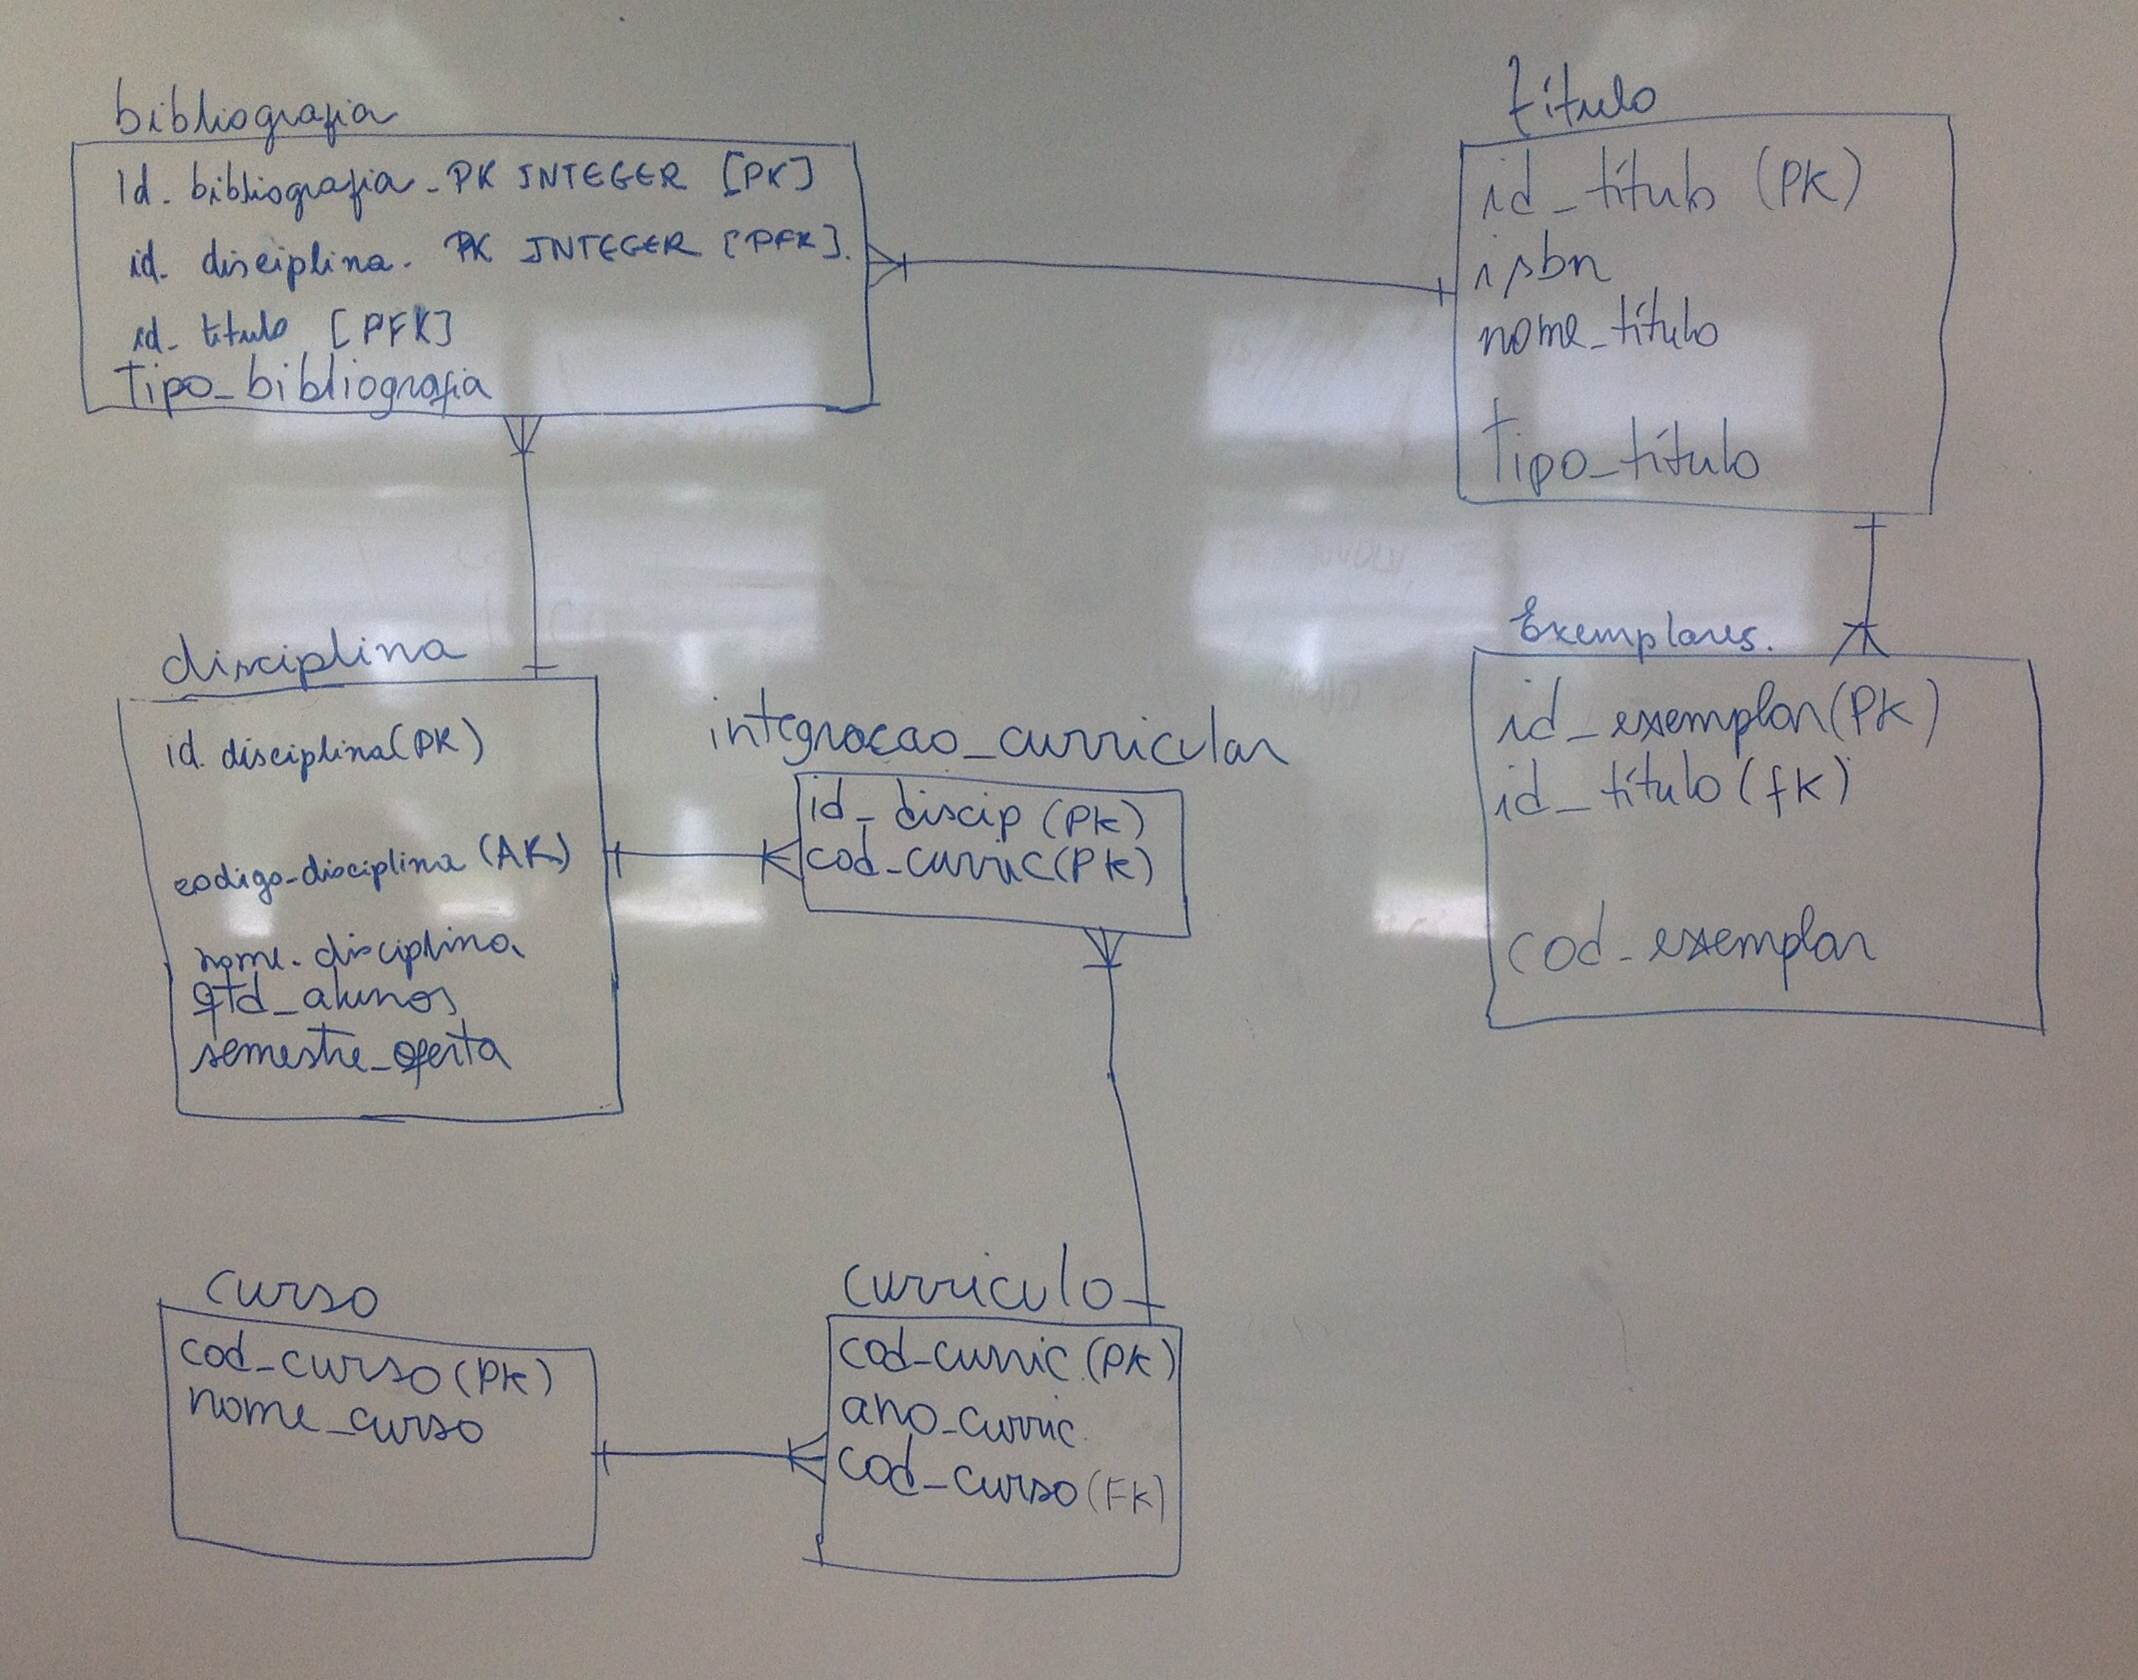 bibliografia
Id. bibliografia - PK INTEGER [PK]
id. disciplina. PK INTEGER [PFK].
id_ titulo [PFK]
Tipo_bibliografia
título
id_título (PK)
isbn
nome_título
Tipo_título
disciplina
id. disciplina (PK)
codigo_disciplina (AK)
nome. disciplina
qtd_alunos
semestre_oferta
integracao_curricular
id_discip (PK)
cod_curric (PK)
Exemplares.
id_exemplar (PK)
id_título (fk)
cod_exemplar
curso
cod_curso (PK)
nome_curso
curriculo
cod_curric (PK)
ano_curric.
cod_curso (FK)